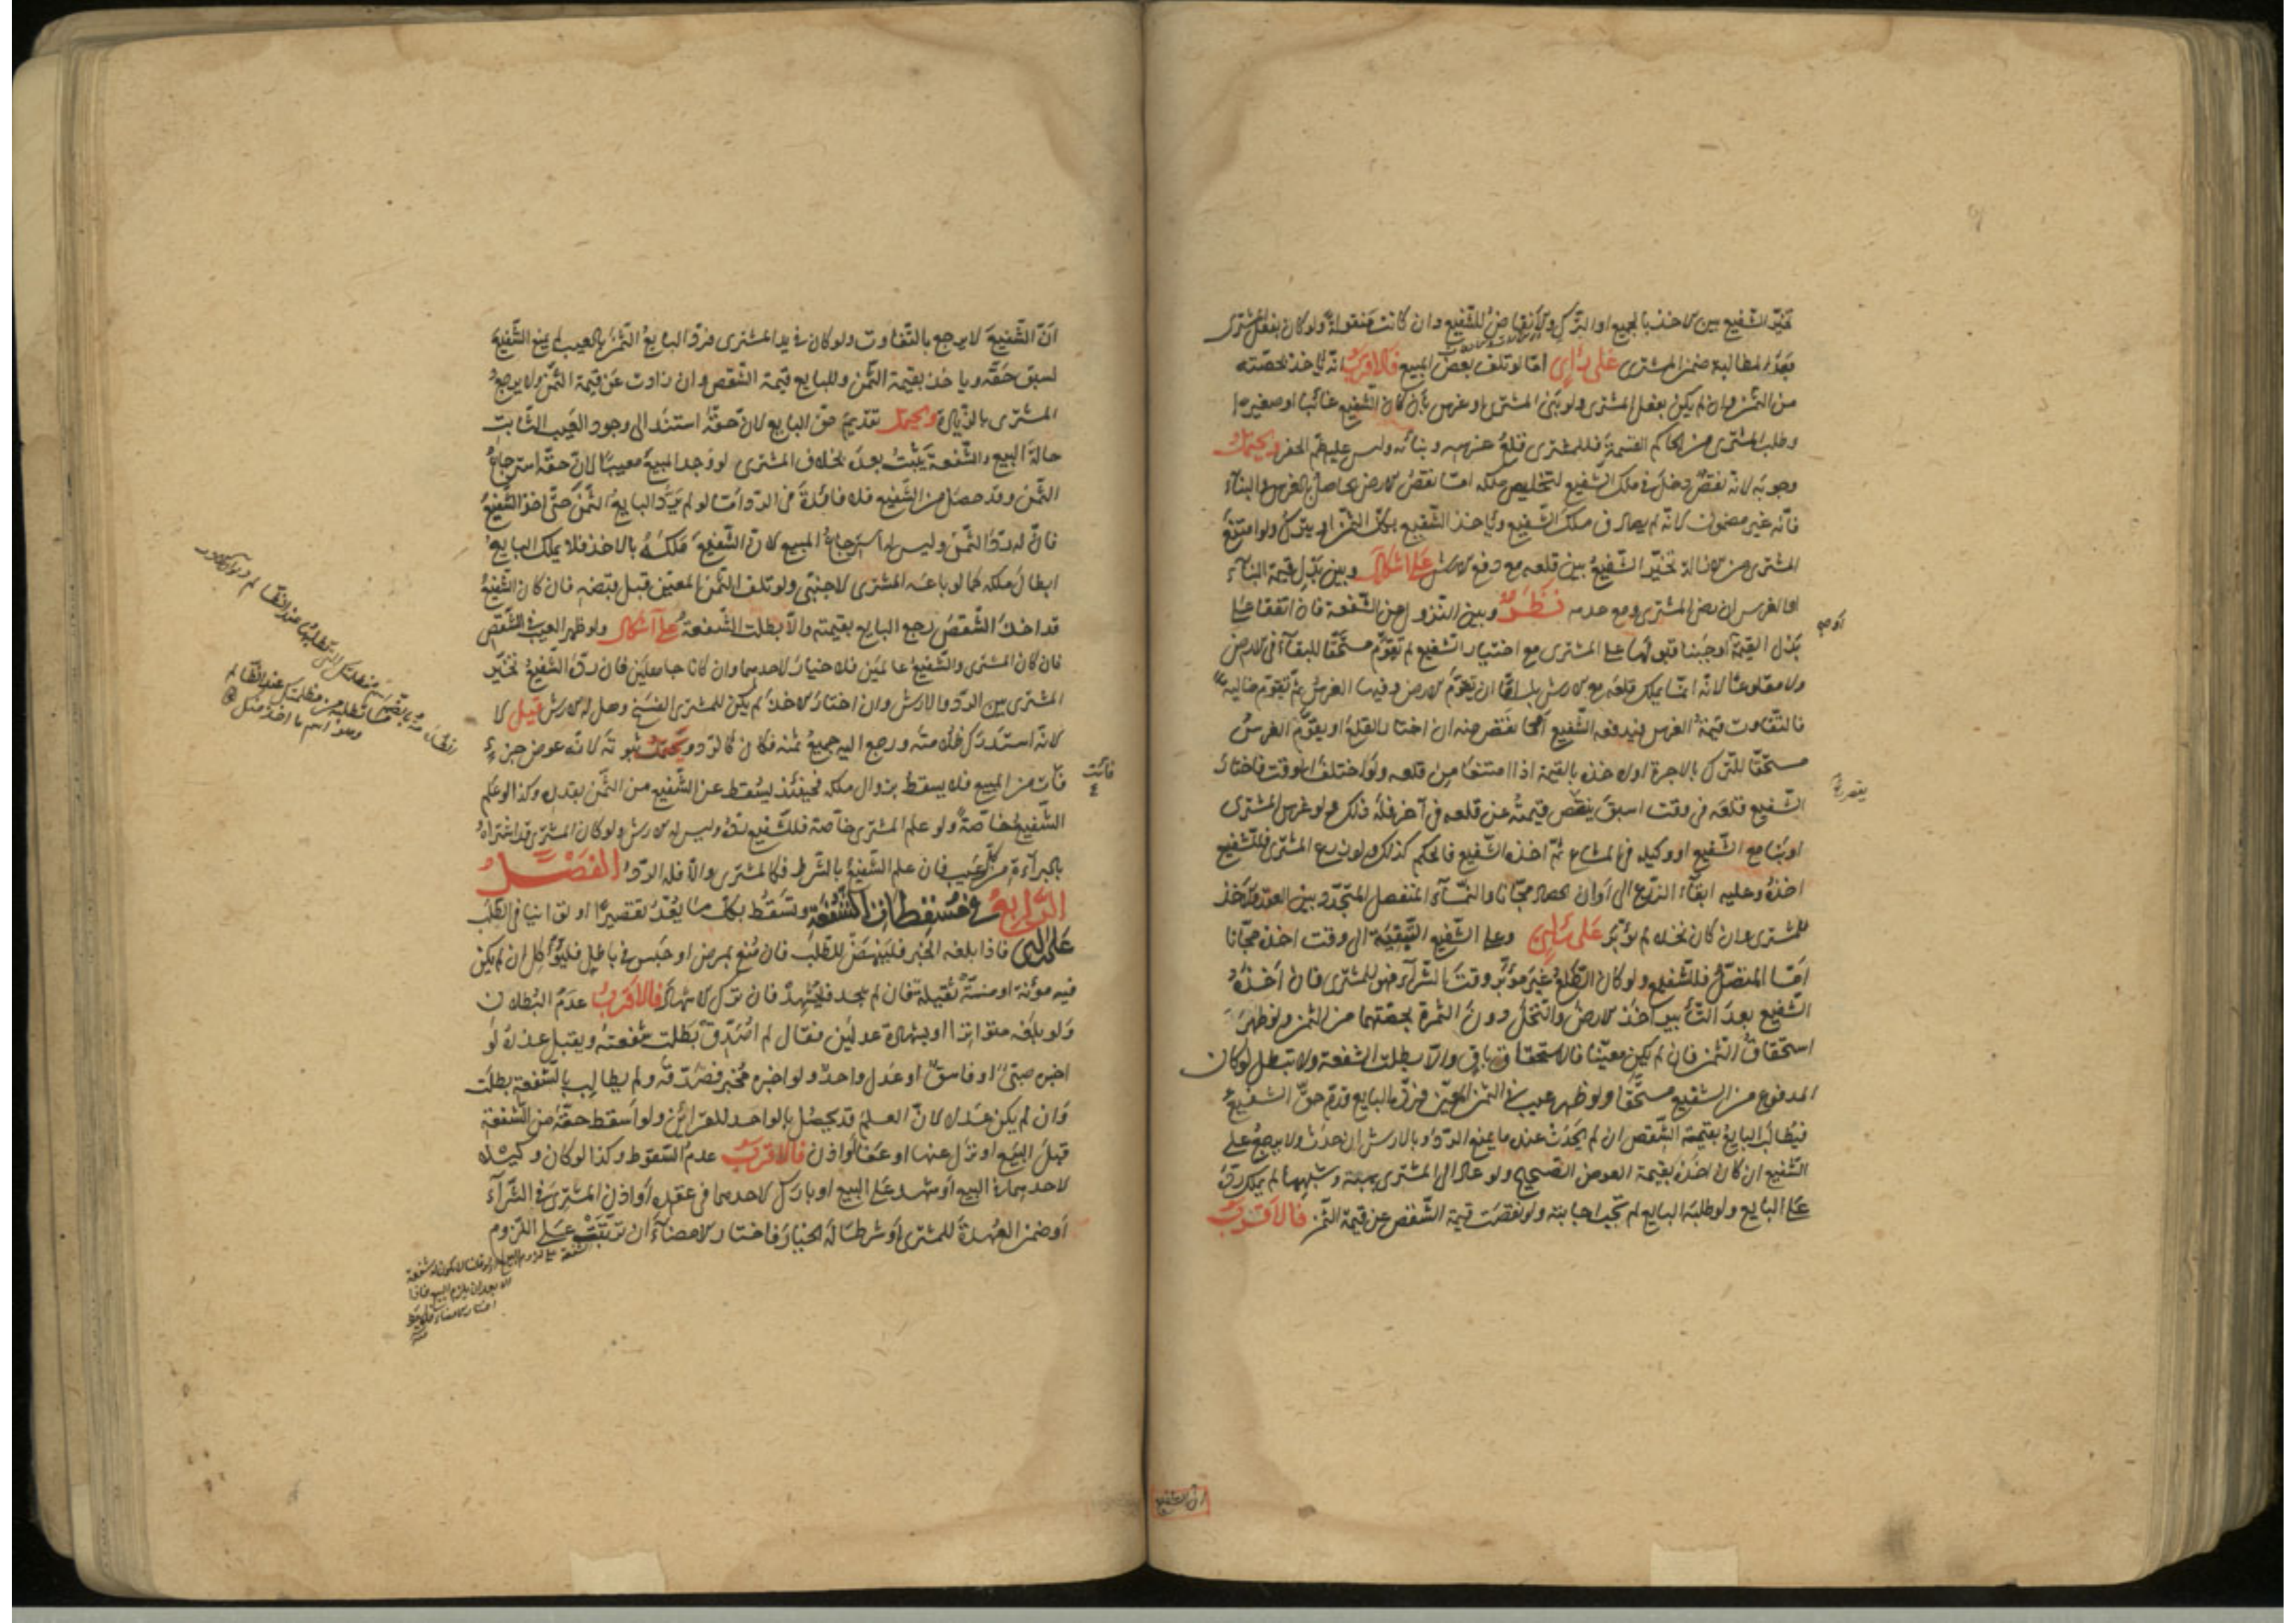 تخيّر الشفيع بين الاخذ بالجميع او الترك والانقاض للشفيع وان كانت منقولة ولو كان بفعل المشتري
بعد المطالبة ضمن المشتري على راي امّا لو تلف بعض المبيع فالاقرب انه ياخذ بحصّته
من الثمن وان لم يكن بفعل المشتري ولو بنى المشتري او غرس بان كان الشفيع غائبا او صغيرا
وطلب المشتري من الحاكم القسمة فللمشتري قلع غرسه وبنائه وليس عليه طمّ الحفر ويحتمل
وجوبه لانه نقص دخل في ملك الشفيع لتخليص ملكه امّا نقص الارض الحاصل بالغرس والبناء
فانّه غير مضمون لانّه لم يصادف ملك الشفيع وياخذ الشفيع بكلّ الثمن او يترك ولو امتنع
المشتري من الازالة تخيّر الشفيع بين قلعه مع دفع الارش على اشكال وبين بذل قيمة البناء
او الغرس ان رضي المشتري ومع عدمه نظر وبين النزول عن الشفعة فان اتفقا على
بذل القيمة او اوجبنا قبولها على المشتري مع اختيار الشفيع لم تقوّم مستحقّا للبقاء في الارض
ولا مقلوعا لانّه انما يملك قلعه مع الارش بل امّا ان تقوّم الارض وفيها الغرس ثمّ تقوّم خالية
فالتفاوت قيمة الغرس فيدفعه الشفيع او ما نقص منه ان اختار القلع او يقوّم الغرس
مستحقّا للترك بالاجرة او لاخذه بالقيمة اذا امتنعا من قلعه ولو اختلف الوقت فاختار
الشفيع قلعه في وقت اسبق ينقص قيمته عن قلعه في آخر فله ذلك ولو غرس المشتري
او بنى مع الشفيع او وكيله في المشاع ثمّ اخذه الشفيع فالحكم كذلك ولو زرع المشتري فللشفيع
اخذه وعليه ابقاء الزرع الى اوان الحصاد مجّانا والنماء المنفصل المتجدّد بين العقد والاخذ
للمشتري وان كان نخلا لم يؤبّر على راي وعلى الشفيع التبقية الى وقت اخذه مجّانا
امّا المتصل فللشفيع ولو كان الطلع غير مؤبّر وقت الشراء فهو للمشتري فان اخذه
الشفيع بعد التأبير اخذ الارض والنخل دون الثمرة بحصّتهما من الثمن ولو ظهر
استحقاق الثمن فان لم يكن معيّنا فالاستحقاق باق والّا بطلت الشفعة ولا تبطل لو كان
المدفوع من الشفيع مستحقّا ولو ظهر عيب في الثمن المعيّن فردّه البايع قدّم حقّ الشفيع
فيطالب البايع بقيمة الشقص ان لم يحدث عنده ما يمنع الردّ او بالارش ان حدث ولا يرجع على
الشفيع ان كان اخذه بقيمة العوض الصحيح ولو عاد الى المشتري بهبة وشبهها لم يملك ردّه
على البايع ولو طلبه البايع لم تجب اجابته ولو نقصت قيمة الشقص عن قيمة الثمن فالاقرب
ان الشفيع
انّ الشفيع لا يرجع بالتفاوت ولو كان في يد المشتري فردّ البايع الثمن بالعيب لم يمنع الشفيع
لسبق حقّه وياخذه بقيمة الثمن وللبايع قيمة الشقص وان زادت عن قيمة الثمن ولا يرجع
المشتري بالزيادة ويحتمل تقديم حقّ البايع لانّ حقّه استند الى وجود العيب الثابت
حالة البيع والشفعة يثبت بعده بخلاف المشتري لو وجد المبيع معيبا لانّ حقّه استرجاع
الثمن وقد حصل من الشفيع فلا فائدة في الردّ امّا لو لم يردّ البايع الثمن حتّى اخذ الشفيع
فانّ له ردّ الثمن وليس له استرجاع المبيع لانّ الشفيع ملكه بالاخذ فلا يملك البايع
ابطال ملكه كما لو باعه المشتري لاجنبيّ ولو تلف الثمن المعيّن قبل قبضه فان كان الشفيع
قد اخذ الشقص رجع البايع بقيمته والّا بطلت الشفعة على اشكال ولو ظهر العيب في الشقص
فان كان المشتري والشفيع عالمين فلا خيار لاحدهما وان كانا جاهلين فان ردّه الشفيع تخيّر
المشتري بين الردّ والارش وان اختار الاخذ لم يكن للمشتري الفسخ وهل له الارش قيل لا
لانّه استدرك ظلامته ورجع اليه جميع ثمنه فكان كالردّ ويحتمل ثبوته لانّه عوض جزء
فات من المبيع فلا يسقط بزوال ملكه فحينئذ يسقط عن الشفيع من الثمن بقدره وكذا لو علم
فائت
الشفيع خاصّة ولو علم المشتري خاصّة فللشفيع ردّه وليس له الارش ولو كان المشتري قد اشتراه
بالبراءة من كلّ عيب فان علم الشفيع بالشرط فكالمشتري والّا فله الردّ الفصل
الرابع في مسقطات الشفعة وتسقط بكلّ ما يعدّ تقصيرا او توانيا في الطلب
على راي فاذا بلغه الخبر فلينهض للطلب فان منع بمرض او حبس في باطل فليوكّل ان لم يكن
فيه مؤنة او منّة ثقيلة فان لم يجد فليشهد فان ترك الاشهاد فالاقرب عدم البطلان
ولو بلغه متواترا او بشهادة عدلين فقال لم اصدّق بطلت شفعته ويقبل عذره لو
اخبره صبيّ او فاسق او عدل واحد ولو اخبره مخبر فصدّقه ولم يطالب بالشفعة بطلت
وان لم يكن عدلا لانّ العلم قد يحصل بالواحد للقرائن ولو اسقط حقّه من الشفعة
قبل البيع او نزل عنها او عفا او اذن فالاقرب عدم السقوط وكذا لو كان وكيلا
لاحدهما في البيع او شهد على البيع او بارك لاحدهما في عقده او اذن للمشتري في الشراء
او ضمن العهدة للمشتري او شرطا له الخيار فاختار الامضاء ان ترتّبت على اللزوم